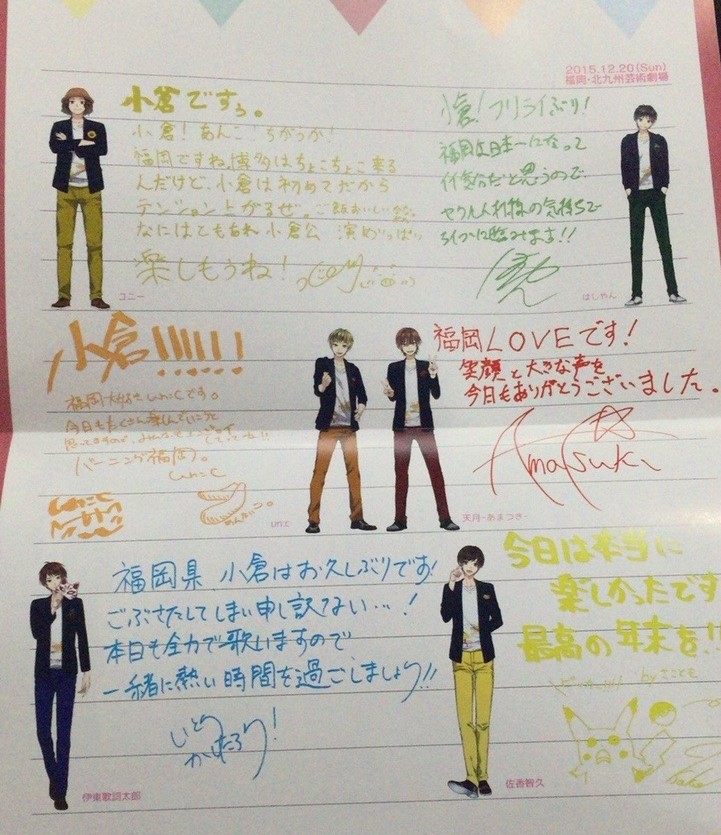 2015.12.20(Sun)
福岡・北九州芸術劇場
小倉ですぅ。
小倉!あんこ
福岡ですね、博多はちょこちょこ来る
んだけど、小倉は初めてだから
テンション上がるぜ。ご飯おいしい
なにはともあれ小倉公演めいっぱい
楽しもうね!
コニー
小倉!フリライぶり!
福岡は日本一になって
と思うので
の気持ちで
ライブに臨みます!!
はしやん
小倉!!!!!!
福岡大好きunicです。
今日もたくさん
バーニング福岡。
unic
めんたいこ。
un:c
福岡LOVEです!
笑顔と大きな声を
今日もありがとうございました。
Amatsuki
天月-あまつき-
福岡県 小倉はお久しぶりです!
ごぶさたしてしまい申し訳ない…!
本日も全力で歌いますので
一緒に熱い時間を過ごしましょう!!
いとうかしたろう!
伊東歌詞太郎
今日は本当に
楽しかったです
最高の年末を!!
佐香智久